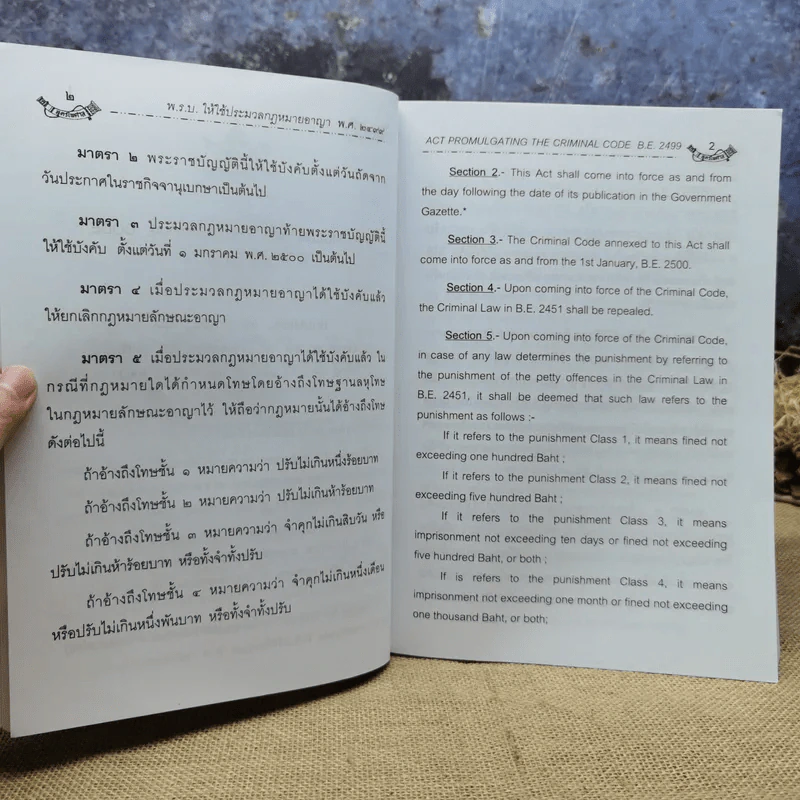 ๒
พ.ร.บ. ให้ใช้ประมวลกฎหมายอาญา พ.ศ. ๒๔๙๙
มาตรา ๒ พระราชบัญญัตินี้ให้ใช้บังคับตั้งแต่วันถัดจาก
วันประกาศในราชกิจจานุเบกษาเป็นต้นไป
มาตรา ๓ ประมวลกฎหมายอาญาท้ายพระราชบัญญัตินี้
ให้ใช้บังคับ ตั้งแต่วันที่ ๑ มกราคม พ.ศ. ๒๕๐๐ เป็นต้นไป
มาตรา ๔ เมื่อประมวลกฎหมายอาญาได้ใช้บังคับแล้ว
ให้ยกเลิกกฎหมายลักษณะอาญา
มาตรา ๕ เมื่อประมวลกฎหมายอาญาได้ใช้บังคับแล้ว ใน
กรณีที่กฎหมายใดได้กำหนดโทษโดยอ้างถึงโทษฐานลหุโทษ
ในกฎหมายลักษณะอาญาไว้ ให้ถือว่ากฎหมายนั้นได้อ้างถึงโทษ
ดังต่อไปนี้
ถ้าอ้างถึงโทษชั้น ๑ หมายความว่า ปรับไม่เกินหนึ่งร้อยบาท
ถ้าอ้างถึงโทษชั้น ๒ หมายความว่า ปรับไม่เกินห้าร้อยบาท
ถ้าอ้างถึงโทษชั้น ๓ หมายความว่า จำคุกไม่เกินสิบวัน หรือ
ปรับไม่เกินห้าร้อยบาท หรือทั้งจำทั้งปรับ
ถ้าอ้างถึงโทษชั้น ๔ หมายความว่า จำคุกไม่เกินหนึ่งเดือน
หรือปรับไม่เกินหนึ่งพันบาท หรือทั้งจำทั้งปรับ
ACT PROMULGATING THE CRIMINAL CODE B.E. 2499
2
Section 2.- This Act shall come into force as and from
the day following the date of its publication in the Government
Gazette.*
Section 3.- The Criminal Code annexed to this Act shall
come into force as and from the 1st January, B.E. 2500.
Section 4.- Upon coming into force of the Criminal Code,
the Criminal Law in B.E. 2451 shall be repealed.
Section 5.- Upon coming into force of the Criminal Code,
in case of any law determines the punishment by referring to
the punishment of the petty offences in the Criminal Law in
B.E. 2451, it shall be deemed that such law refers to the
punishment as follows :-
If it refers to the punishment Class 1, it means fined not
exceeding one hundred Baht ;
If it refers to the punishment Class 2, it means fined not
exceeding five hundred Baht ;
If it refers to the punishment Class 3, it means
imprisonment not exceeding ten days or fined not exceeding
five hundred Baht, or both ;
If is refers to the punishment Class 4, it means
imprisonment not exceeding one month or fined not exceeding
one thousand Baht, or both;